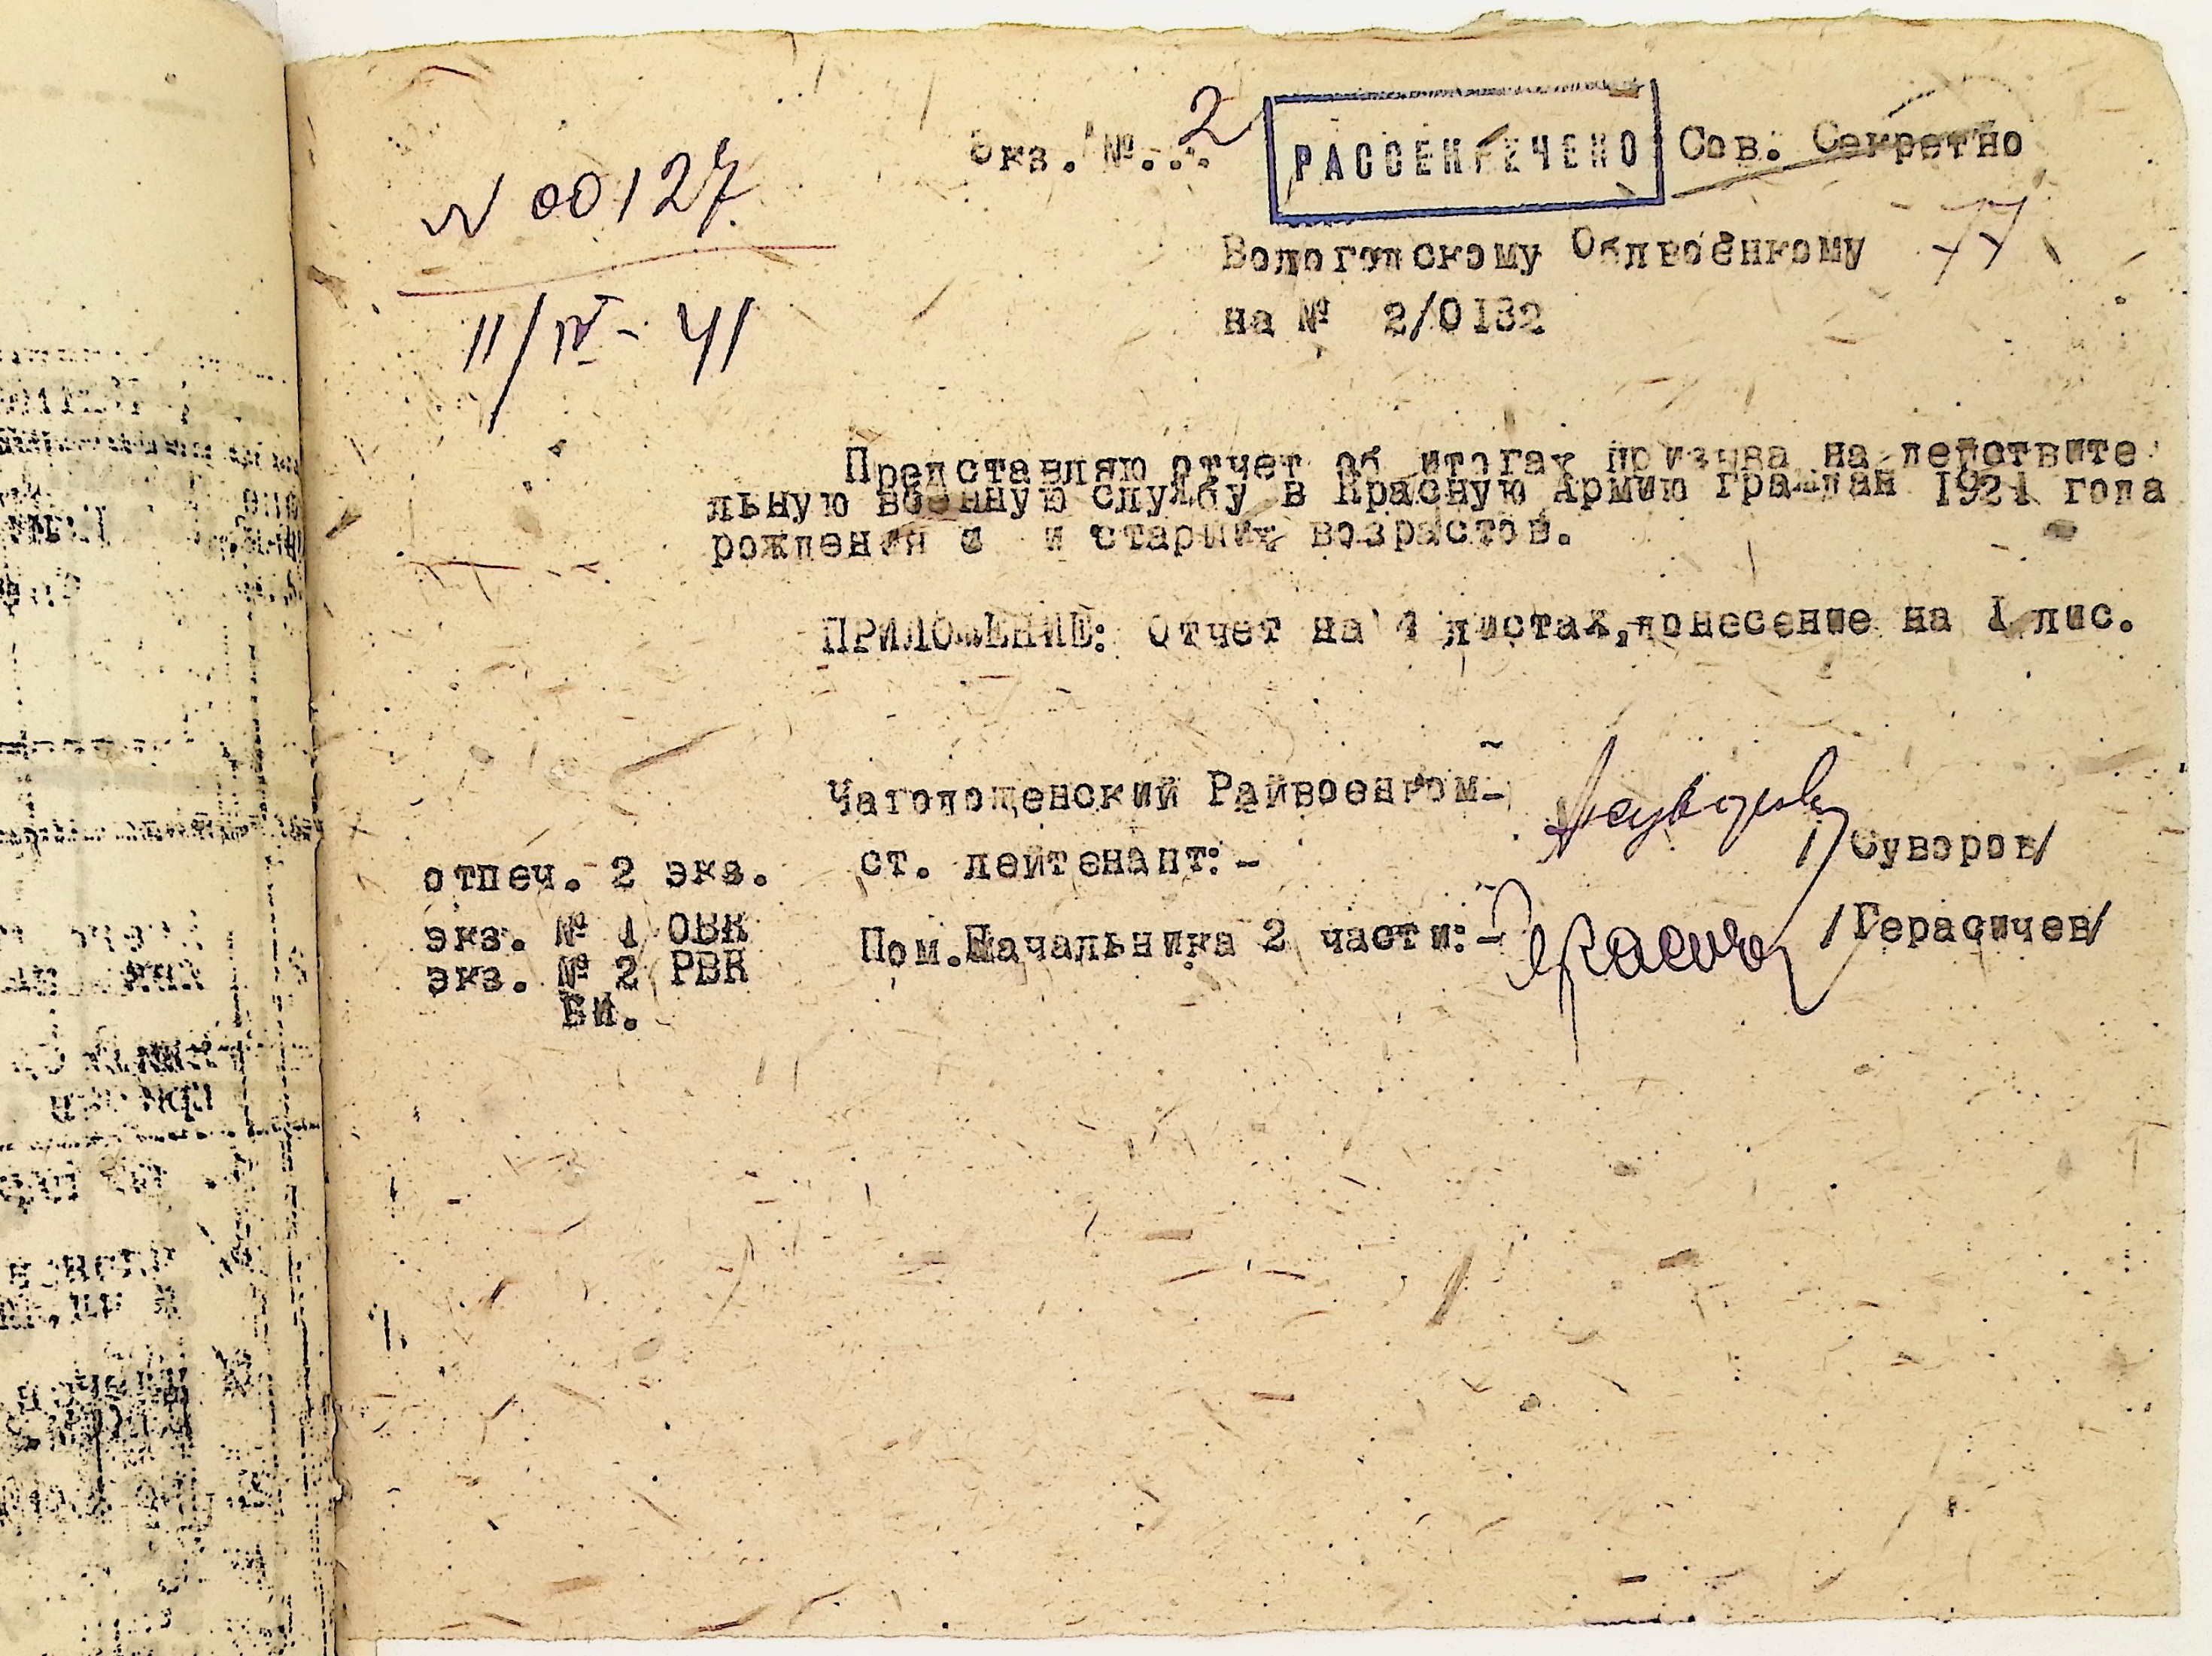 Экз. №... 2
РАССЕКРЕЧЕНО
Сов. Секретно
N 00127
11/IV - 41
Вологодскому Облвоенкому
на № 2/0132
Представляю отчет об итогах призыва на действите
льную военную службу в Красную Армию граждан 1921 года
рождения и и старших возрастов.
ПРИЛОЖЕНИЕ: Отчет на 4 листах, донесение на 1 лис.
Чагодощенский Райвоенком-
ст. лейтенант:-
/Суворов/
Пом.Начальника 2 части:-
/Герасичев/
отпеч. 2 экз.
экз. № 1 ОВК
экз. № 2 РВК
ВИ.